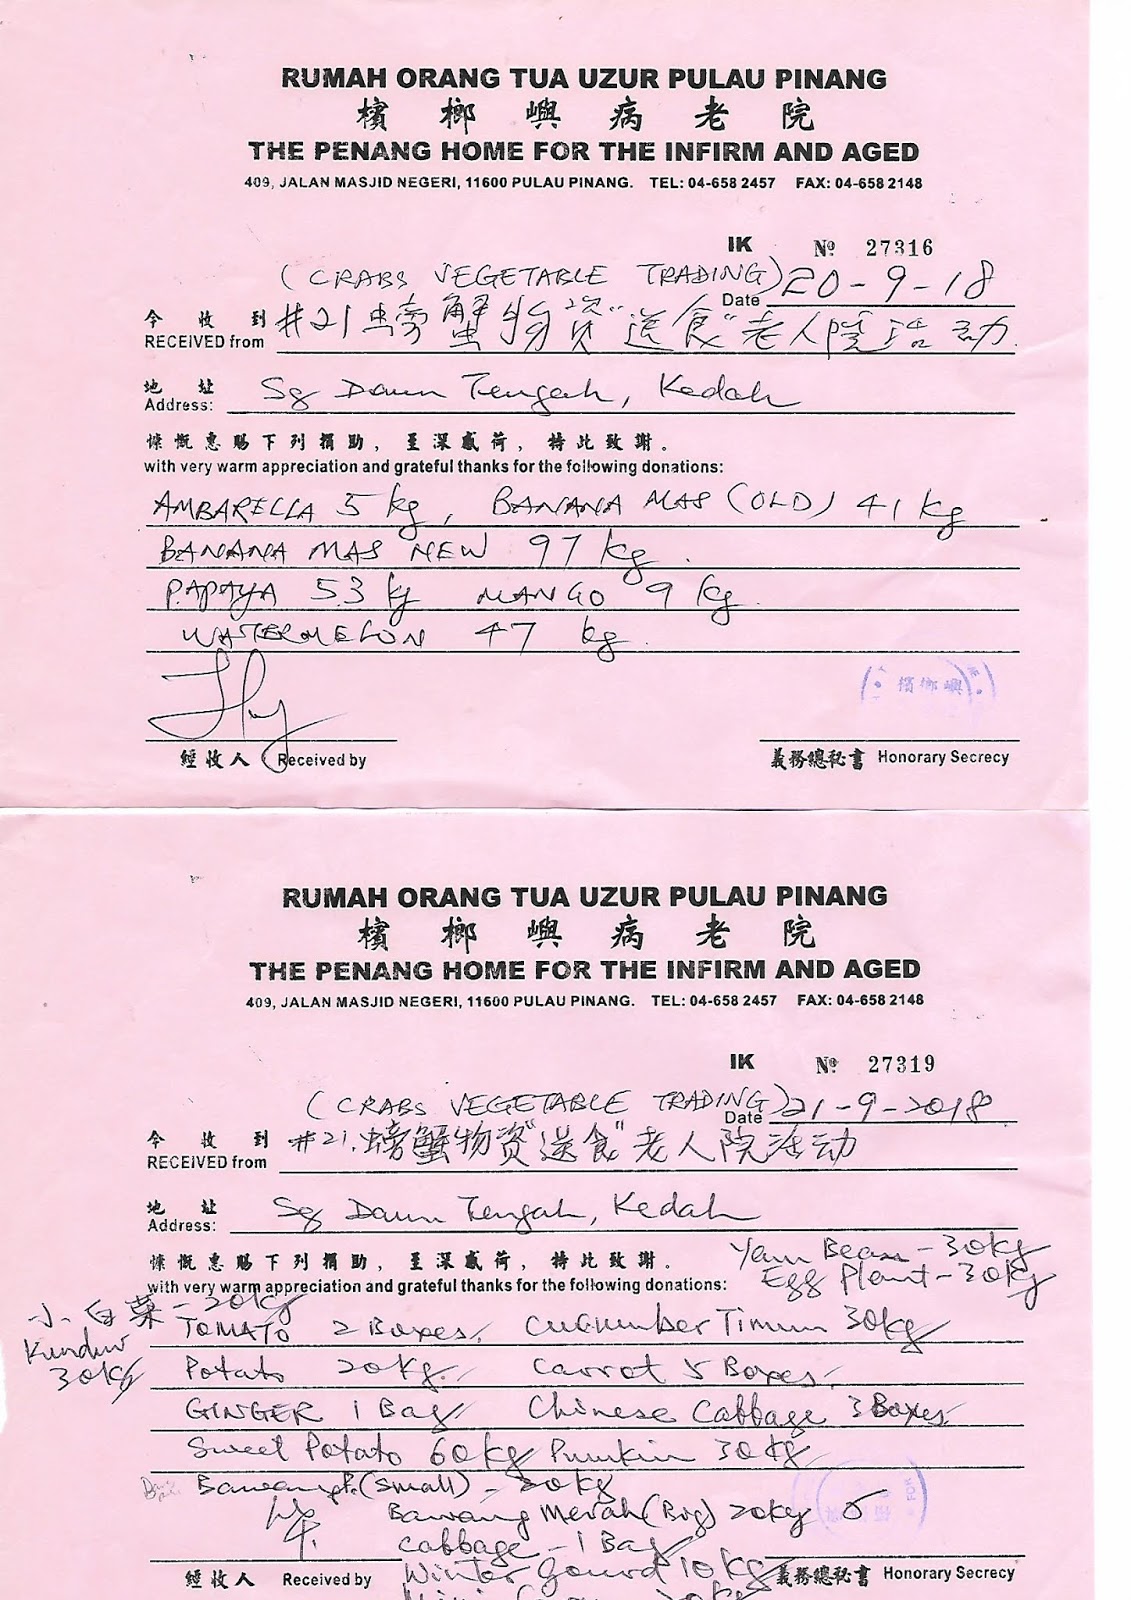 RUMAH ORANG TUA UZUR PULAU PINANG
檳榔嶼病老院
THE PENANG HOME FOR THE INFIRM AND AGED
409, JALAN MASJID NEGERI, 11600 PULAU PINANG. TEL: 04-658 2457 FAX: 04-658 2148
IK № 27316
(CRABS VEGETABLE TRADING) Date 20-9-18
今收到 RECEIVED from #21螃蟹物资"送食"老人院活动
地址 Address: Sg Daun Tengah, Kedah
慷慨惠賜下列捐助，至深感荷，特此致謝。
with very warm appreciation and grateful thanks for the following donations:
AMBARELLA 5 kg, BANANA MAS (OLD) 41 kg
BANANA MAS NEW 97 kg.
PAPAYA 53 kg MANGO 9 kg.
WATERMELON 47 kg.
檳榔嶼
經收人 Received by 義務總秘書 Honorary Secrecy
RUMAH ORANG TUA UZUR PULAU PINANG
檳榔嶼病老院
THE PENANG HOME FOR THE INFIRM AND AGED
409, JALAN MASJID NEGERI, 11600 PULAU PINANG. TEL: 04-658 2457 FAX: 04-658 2148
IK № 27319
(CRABS VEGETABLE TRADING) Date 21-9-2018
今收到 RECEIVED from #21.螃蟹物资"送食"老人院活动
地址 Address: Sg Daun Tengah, Kedah
慷慨惠賜下列捐助，至深感荷，特此致謝。 Yam Bean - 30kg
with very warm appreciation and grateful thanks for the following donations: Egg Plant - 30kg
小白菜 - 20kg
TOMATO 2 Boxes, Cucumber Timun 30kg
Kundur 30kg
Potato 20kg. Carrot 5 Boxes
GINGER 1 Bag Chinese Cabbage 3 Boxes
Sweet Potato 60kg Pumkin 30kg
(small) - 30kg
Bawang Merah (Big) 20kg
cabbage - 1 Bag
Winter Gourd 10kg
經收人 Received by 義務總秘書 Honorary Secrecy